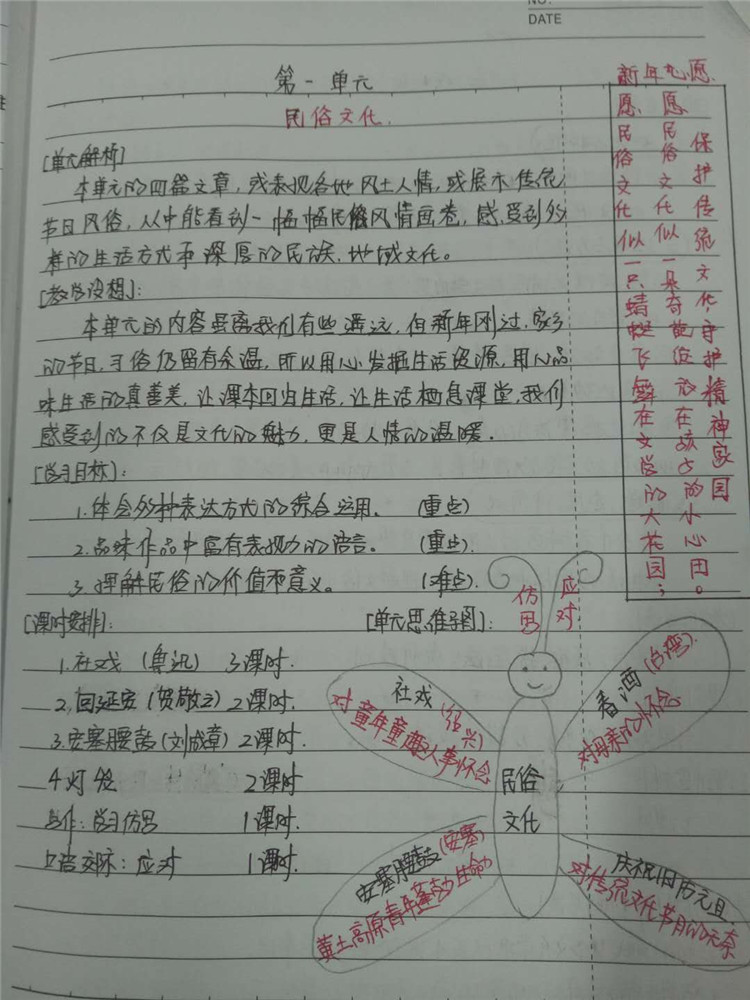 NO.
DATE
第一单元
民俗文化.
[单元解析]
本单元的四篇文章,或表现各地风土人情,或展示传统
节日风俗,从中能看到一幅幅民俗风情画卷,感受到多
样的生活方式和深厚的民族、地域文化。
[教学设想]:
本单元的内容虽离我们有些遥远,但新年刚过,家乡
的节日,习俗仍留有余温,所以用心发掘生活资源,用心品
味生活的真善美,让课本回归生活,让生活栖息课堂,我们
感受到的不仅是文化的魅力,更是人情的温暖.
[学习目标]:
1.体会多种表达方式的综合运用。 (重点)
2.品味作品中富有表现力的语言。 (重点).
3.理解民俗的价值和意义。 (难点).
[课时安排]:
1.社戏 (鲁迅) 3课时.
2.回延安 (贺敬之) 2课时.
3.安塞腰鼓 (刘成章) 2课时.
4.灯笼 2课时
写作:学习仿写 1课时.
口语交际:应对 1课时.
[单元思维导图]:
仿写
应对
社戏(绍兴)
对童年童趣人事怀念
春酒(台湾).
对母亲的怀念
民俗
文化
安塞腰鼓(安塞)
黄土高原青年蓬勃生命力
庆祝旧历元旦
对传统文化节日的
新年心愿.
愿民俗文化似一只蜻蜓飞舞在文学的大花园;
愿民俗文化似一朵奇葩绽放在孩子的小心田。
保护传统文化,守护精神家园